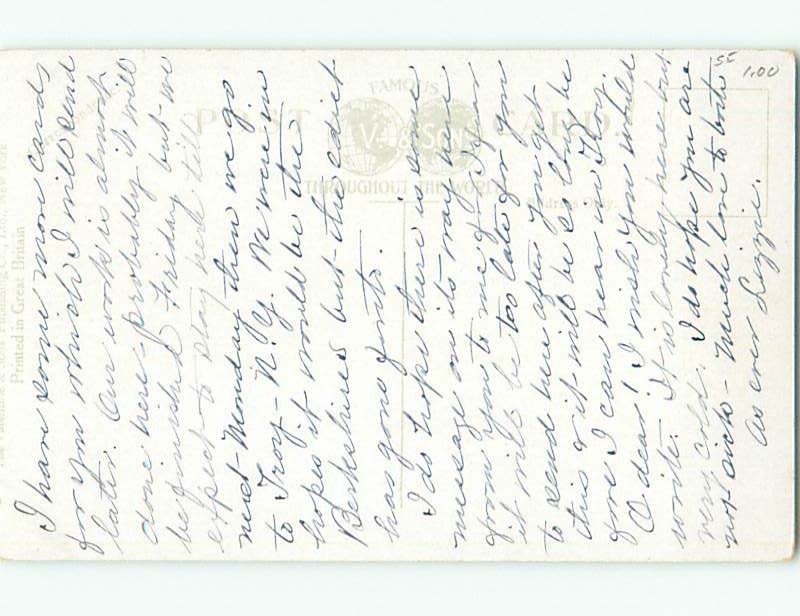 I have some more cards
for you which I will send
later. Our work is almost
done here probably it will
be finished Friday but we
expect to stay here till
next Monday then we go
to Troy - N.Y. We were in
hopes it would be the
Berkshires but the circuit
has gone first.
I do hope there is one
message on its way here
from you to me for I fear
it will be too late for you
to send here after you get
this & it will be so long be
fore I can hear in Troy.
O dear! I wish you would
write. It is lovely here but
very cold. I do hope you are
not sick - Much love to both
As ever Lizzie.
POST CARD.
FAMOUS
V. & SONS
THROUGHOUT THE WORLD
Address Only.
Printed in Great Britain
New York
SE
1.00